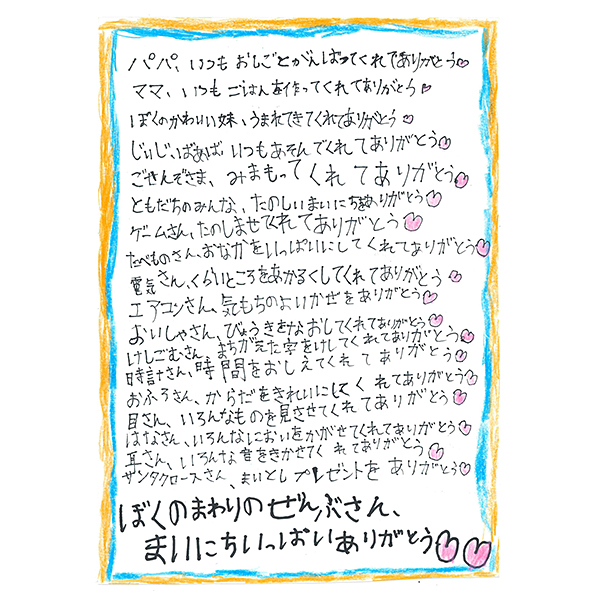 パパ、いつもおしごとがんばってくれてありがとう
ママ、いつもごはんを作ってくれてありがとう
ぼくのかわいい妹、うまれてきてくれてありがとう
じぃじ、ばぁば、いつもあそんでくれてありがとう
ごせんぞさま、みまもってくれてありがとう
ともだちのみんな、たのしいまいにちをありがとう
ゲームさん、たのしませてくれてありがとう
たべものさん、おなかをいっぱいにしてくれてありがとう
電気さん、くらいところをあかるくしてくれてありがとう
エアコンさん、気もちのよいかぜをありがとう
おいしゃさん、びょうきをなおしてくれてありがとう
けしごむさん、まちがえた字をけしてくれてありがとう
時計さん、時間をおしえてくれてありがとう
おふろさん、からだをきれいにしてくれてありがとう
目さん、いろんなものを見させてくれてありがとう
はなさん、いろんなにおいをかがせてくれてありがとう
耳さん、いろんな音をきかせてくれてありがとう
サンタクロースさん、まいとしプレゼントをありがとう
ぼくのまわりのぜんぶさん、
まいにちいっぱいありがとう